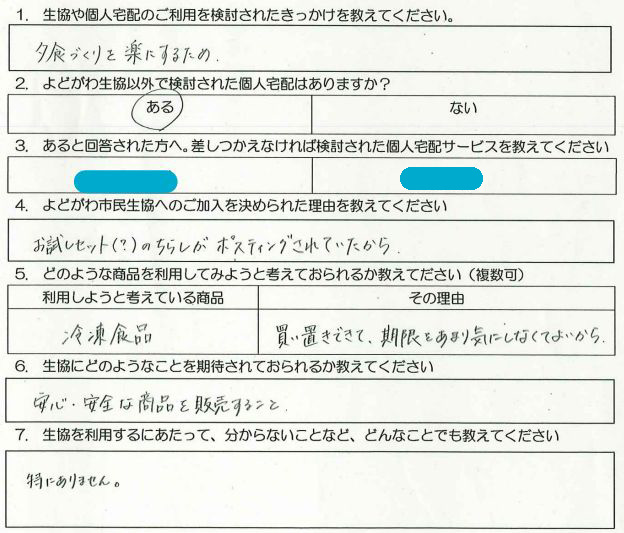 1. 生協や個人宅配のご利用を検討されたきっかけを教えてください。
夕食づくりを楽にするため.
2. よどがわ生協以外で検討された個人宅配はありますか?
ある ない
3. あると回答された方へ。差しつかえなければ検討された個人宅配サービスを教えてください
4. よどがわ市民生協へのご加入を決められた理由を教えてください
お試しセット(?)のちらしがポスティングされていたから.
5. どのような商品を利用してみようと考えておられるか教えてださい(複数可)
利用しようと考えている商品 その理由
冷凍食品 買い置きできて、期限をあまり気にしなくてよいから.
6. 生協にどのようなことを期待されておられるか教えてください
安心・安全な商品を販売すること.
7. 生協を利用するにあたって、分からないことなど、どんなことでも教えてください
特にありません。